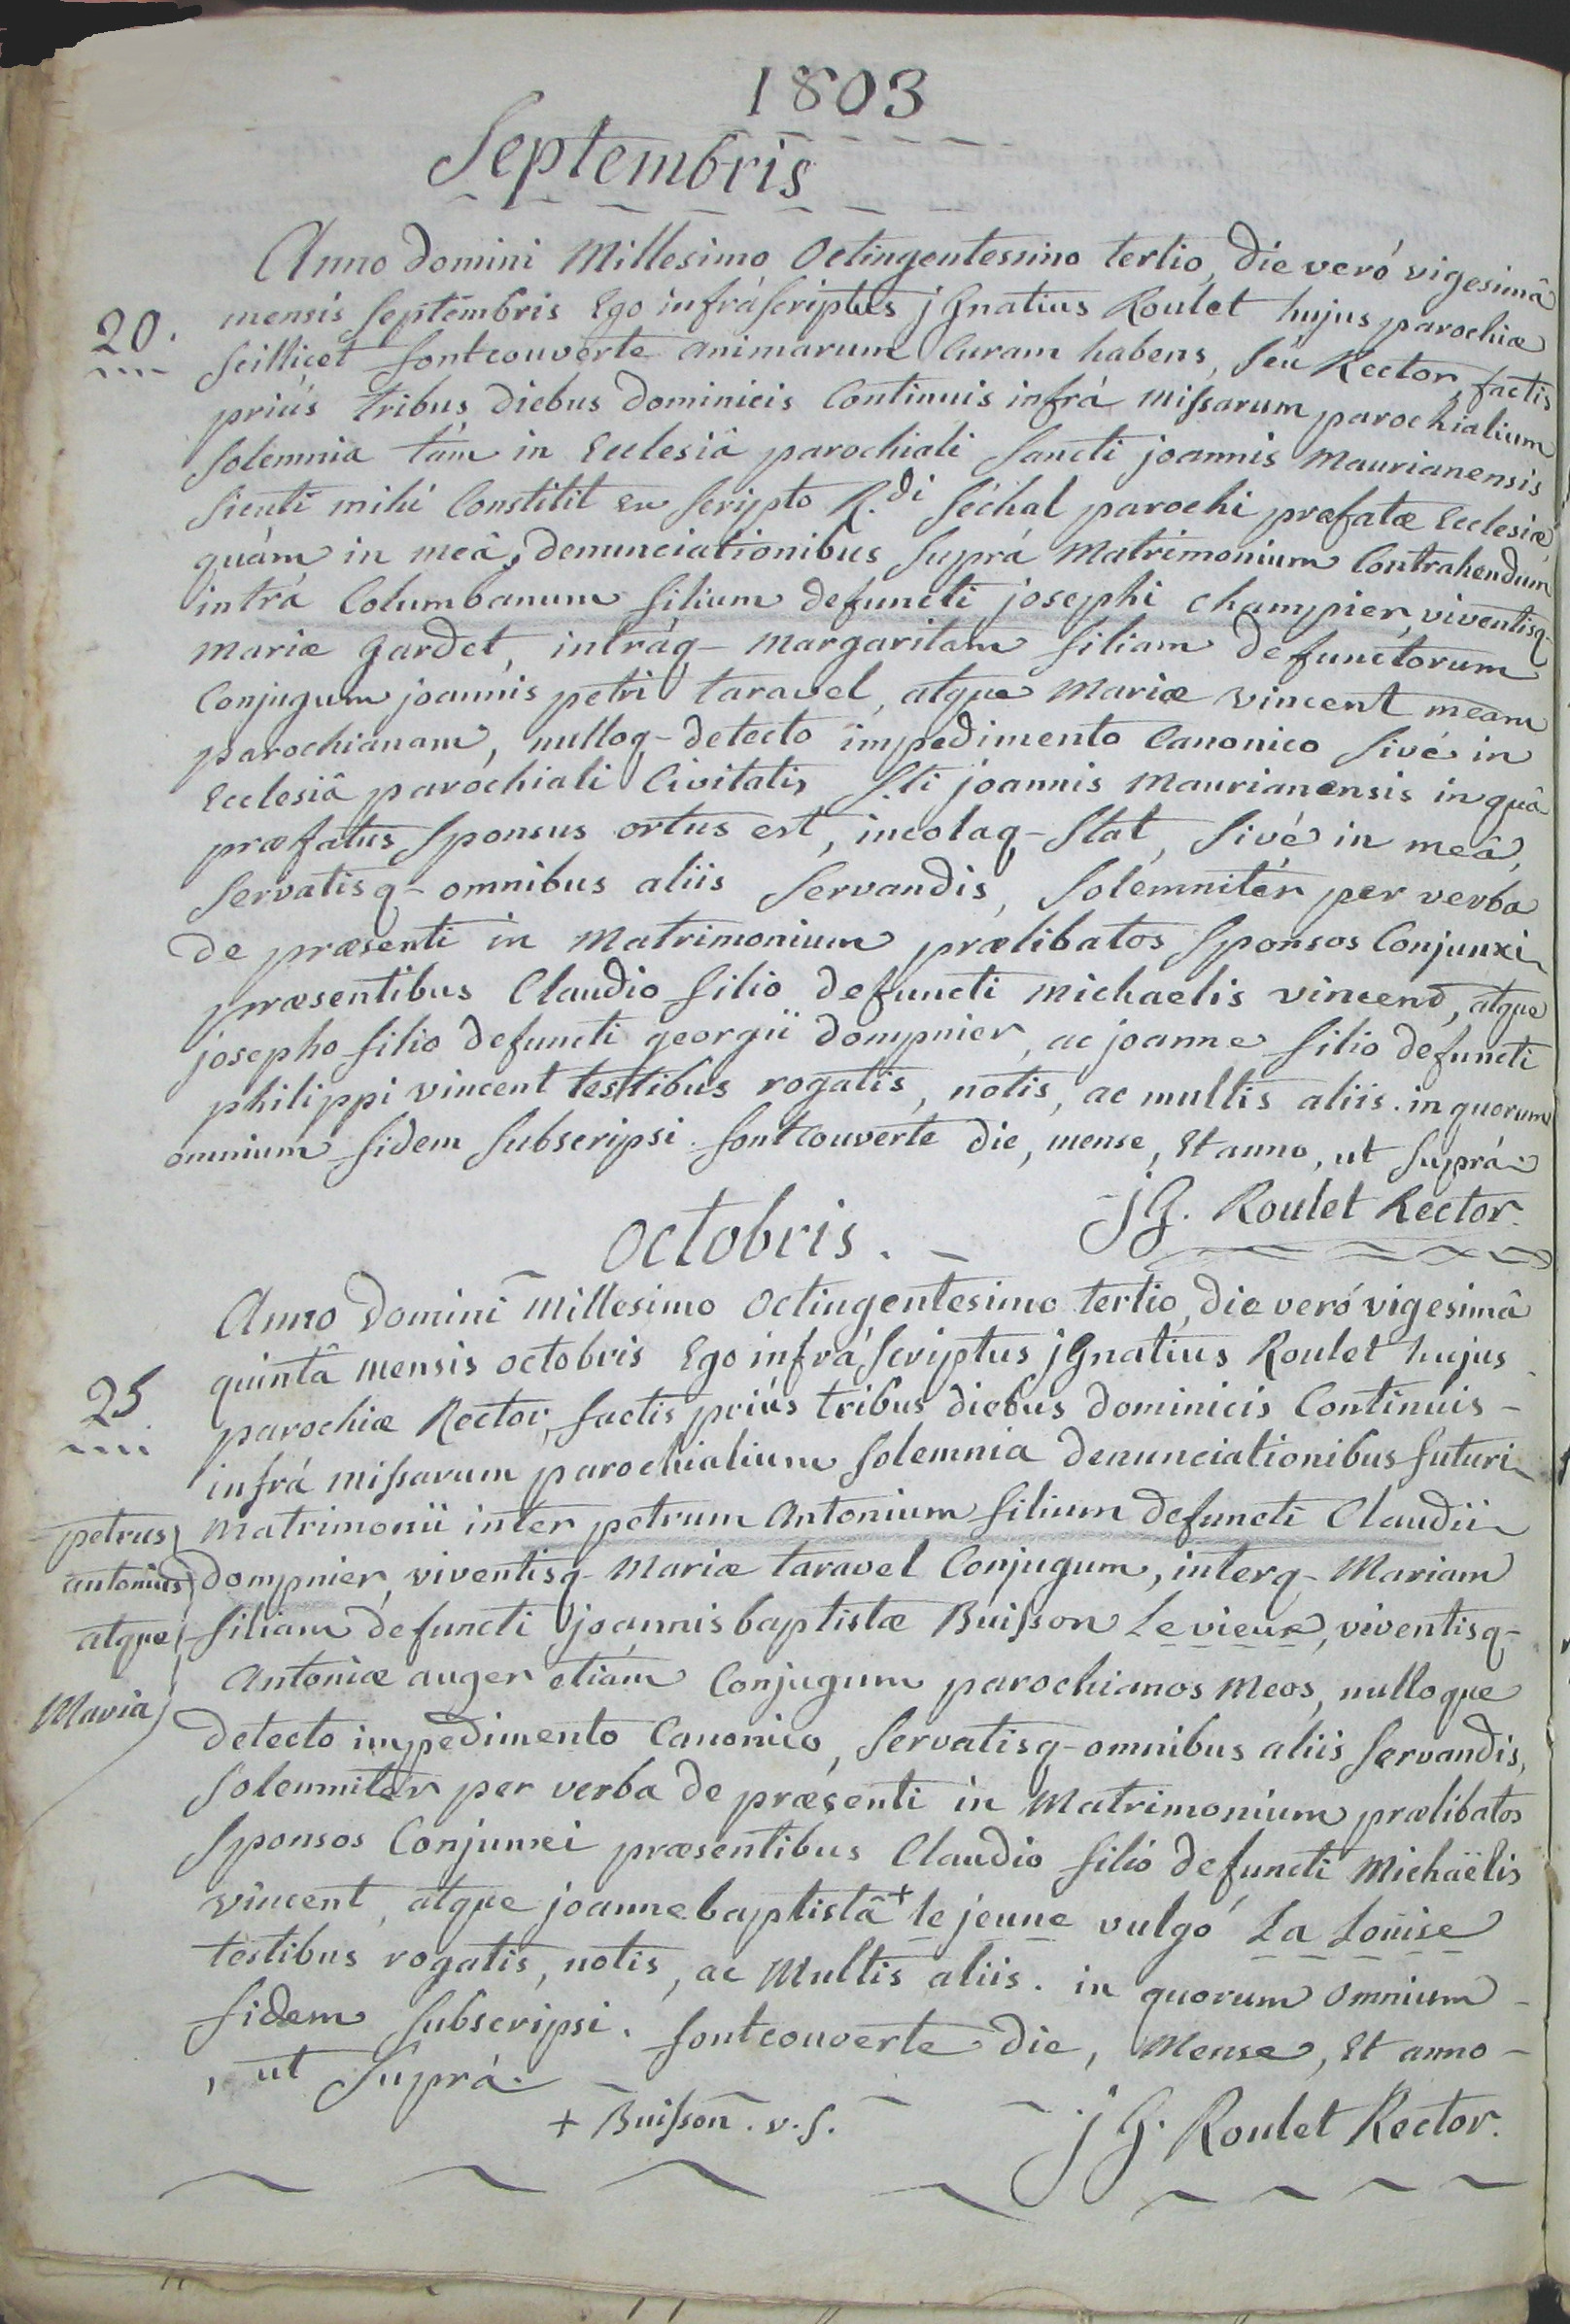 1803
Septembris
Anno Domini Millesimo Octingentesimo tertio, die veró vigesimâ
20. mensis septembris Ego infráscriptus jGnatius Roulet hujus parochiæ
scillicet fontcouverte animarum Curam habens, seu Rector, factis
priús tribus diebus dominicis Continuis infrá missarum parochialium
solemnia tám in Ecclesiâ parochiali sancti joannis Maurianensis
sicuti mihi Constitit Ex scripto R.di séchal parochi præfatæ Ecclesiæ
quám in meâ, denunciationibus suprá Matrimonium Contrahendum
intrá Columbanum filium defuncti josephi champier, viventisq-
mariæ gardet, intráq- margaritam filiam defunctorum
Conjugum joannis petri taravel, atque Mariæ vincent meam
parochianam, nulloq- detecto impedimento Canonico sivé in
Ecclesiâ paróchiali Civitatis S.ti joannis Maurianensis in quâ
præfatus sponsus ortus est, incolaq- stat, sivé in meâ,
servatisq- omnibus aliis servandis, solemnitér per verba
de præsenti in Matrimonium prælibatos sponsos Conjunxi
præsentibus Claudio filio defuncti michaelis vincend, atque
josepho filio defuncti georgii dompnier, ac joanne filio defuncti
philippi vincent testibus rogatis, notis, ac multis aliis. in quorum
omnium fidem subscripsi. fontcouverte die, mense, Et anno, ut suprá.
jG. Roulet Rector.
octobris.
Anno Domini Millesimo Octingentesimo tertio, die veró vigesimâ
25 quintâ mensis octobris Ego infráscriptus jGnatius Roulet hujus
parochiæ Rector, factis priús tribus diebus dominicis Continuis
infrá missarum parochialium solemnia denunciationibus futuri
petrus Matrimonii inter petrum Antonium filium defuncti Claudii
antonius dompnier, viventisq- Mariæ taravel Conjugum, interq- Mariam
atque filiam defuncti joannis baptistæ Buisson Le vieux, viventisq-
Maria Antoniæ auger etiám Conjugum parochianos meos, nulloque
detecto impedimento Canonico, servatisq- omnibus aliis servandis,
solemnitér per verba de præsenti in Matrimonium prælibatos
sponsos Conjunxi præsentibus Claudio filio defuncti Michaëlis
vincent, atque joanne baptistâ + le jeune vulgó La Loüise
testibus rogatis, notis, ac Multis aliis. in quorum omnium
fidem subscripsi. fontcouverte die, Mense, Et anno
, ut suprá.
+ Buisson. v. s. jG. Roulet Rector.